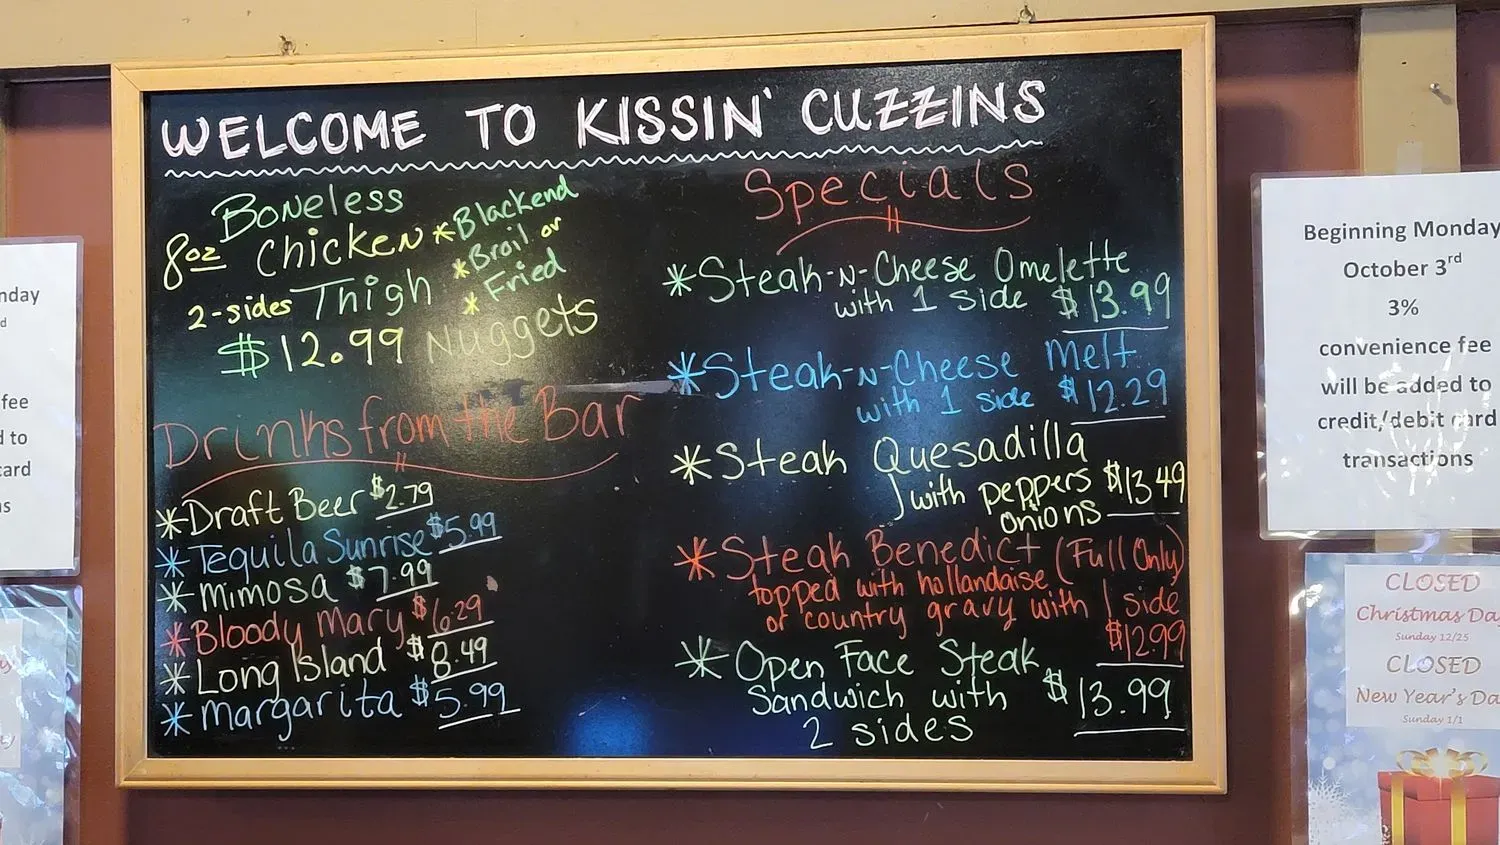 WELCOME TO KISSIN' CUZZINS
Boneless
8oz Chicken
2-sides Thigh
$12.99 Nuggets
*Blackend
*Broil or
*Fried
Drinks from the Bar
*Draft Beer $2.79
*Tequila Sunrise $5.99
*Mimosa $7.99
*Bloody Mary $6.29
*Long Island $8.49
*Margarita $5.99
Specials
*Steak-N-Cheese Omelette
with 1 side $13.99
*Steak-N-Cheese Melt
with 1 side $12.29
*Steak Quesadilla
with peppers $13.49
onions
*Steak Benedict (Full Only)
topped with hollandaise
or country gravy with 1 side
$12.99
*Open Face Steak
Sandwich with $13.99
2 sides
Beginning Monday
October 3rd
3%
convenience fee
will be added to
credit/debit card
transactions
CLOSED
Christmas Day
Sunday 12/25
CLOSED
New Year's Da
Sunday 1/1
nday
d
fee
d to
card
s